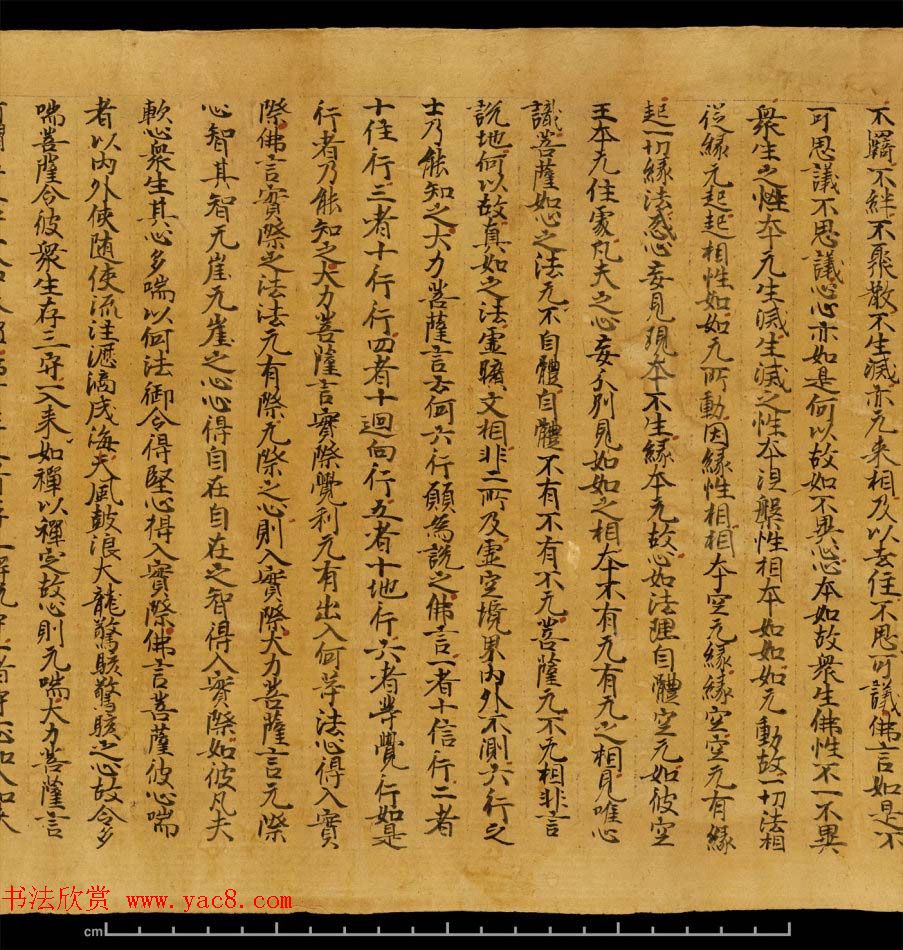 不羇不絆不聚散不生滅亦无来相及以去住不思可議佛言如是不
可思議不思議心心亦如是何以故如不異心心本如故衆生佛性不一不異
衆生之性本无生滅生滅之性本涅槃性相本如如如无動故一切法相
從緣无起起相性如如无所動因緣性相相本空无緣緣空空无有緣
起一切緣法惑心妄見現本不生緣本无故心如法理自體空无如彼空
王本无住家凡夫之心妄分別見如如之相本不有无有无之相見唯心
識菩薩如心之法元不自體自體不有不有不无菩薩无不无相非言
說地何以故真如之法虛曠文相非二所及虛空境界內外不測六行之
士乃能知之大力菩薩言云何六行願為說之佛言一者十信行二者
十住行三者十行行四者十迴向行五者十地行六者等覺行如是
行者乃能知之大力菩薩言實際覺利无有出入何等法心得入實
際佛言實際之法法无有際无際之心則入實際大力菩薩言无際
心智其智无崖无崖之心心得自在自在之智得入實際如彼凡夫
軟心衆生其心多喘以何法御令得堅心得入實際佛言菩薩彼心喘
者以內外使随使流注滴瀝成海大風鼓浪大龍驚駭驚駭之心故令多
喘菩薩令彼衆生存三守一入来如禪以禪定故心則无喘大力菩薩言
书法欣赏 www.yac8.com
cm